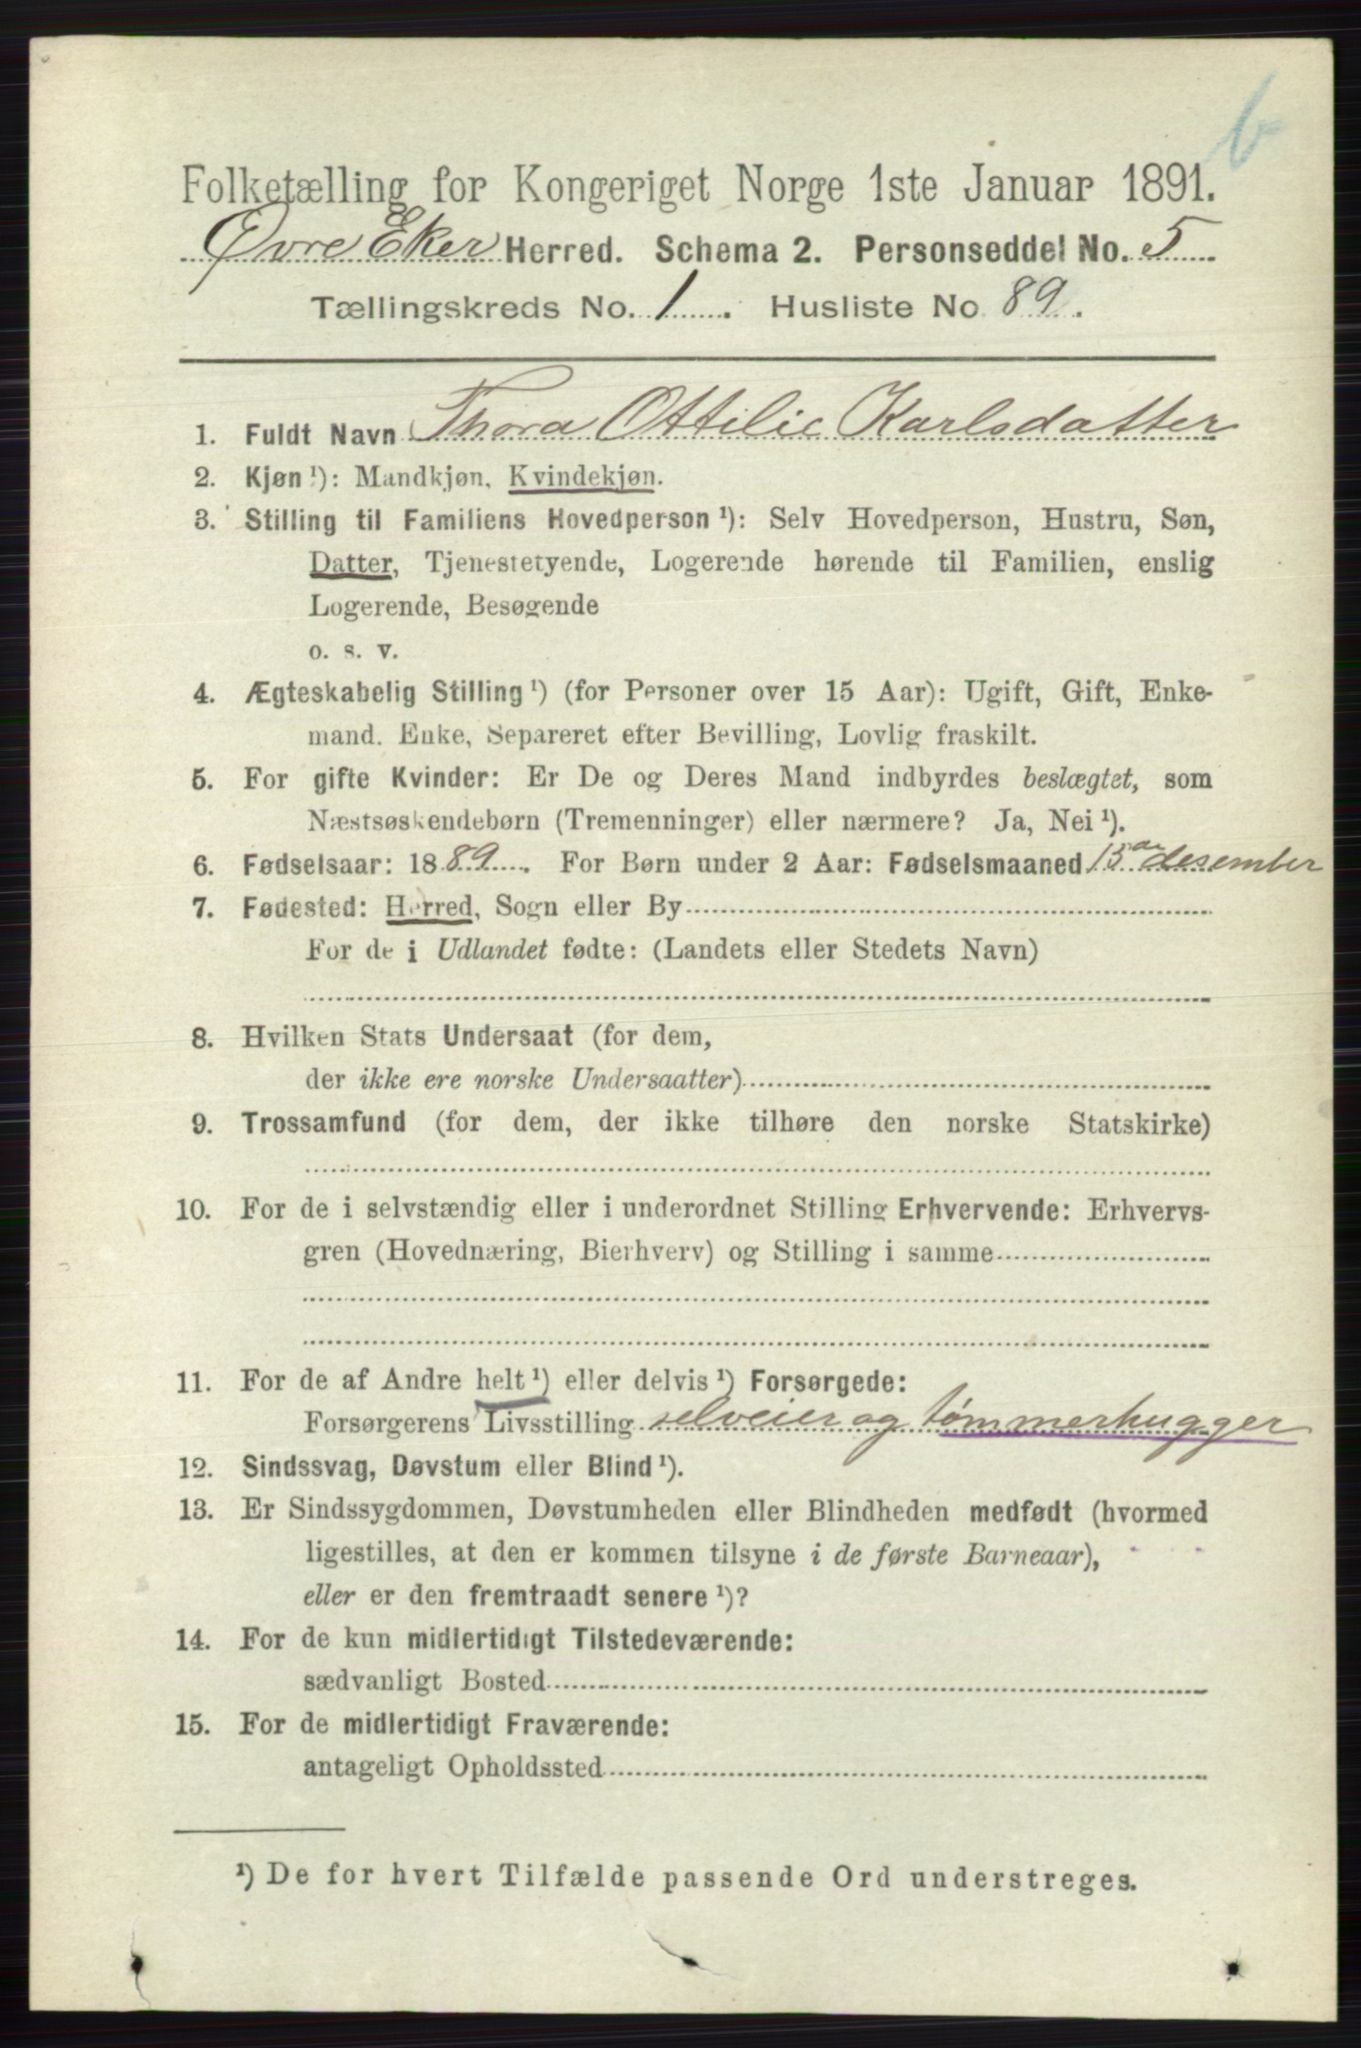 b
Folketælling for Kongeriget Norge 1ste Januar 1891.
Øvre Eker Herred. Schema 2. Personseddel No. 5
Tællingskreds No. 1. Husliste No 89.
1. Fuldt Navn Thora Ottilie Karlsdatter
2. Kjøn¹): Mandkjøn, Kvindekjøn.
3. Stilling til Familiens Hovedperson¹): Selv Hovedperson, Hustru, Søn,
Datter, Tjenestetyende, Logerende hørende til Familien, enslig
Logerende, Besøgende
o. s. v.
4. Ægteskabelig Stilling¹) (for Personer over 15 Aar): Ugift, Gift, Enke-
mand. Enke, Separeret efter Bevilling, Lovlig fraskilt.
5. For gifte Kvinder: Er De og Deres Mand indbyrdes beslægtet, som
Næstsøskendebørn (Tremenninger) eller nærmere? Ja, Nei¹).
6. Fødselsaar: 1889. For Børn under 2 Aar: Fødselsmaaned 15de desember
7. Fødested: Herred, Sogn eller By
For de i Udlandet fødte: (Landets eller Stedets Navn)
8. Hvilken Stats Undersaat (for dem,
der ikke ere norske Undersaatter)
9. Trossamfund (for dem, der ikke tilhøre den norske Statskirke)
10. For de i selvstændig eller i underordnet Stilling Erhvervende: Erhvervs-
gren (Hovednæring, Bierhverv) og Stilling i samme
11. For de af Andre helt¹) eller delvis¹) Forsørgede:
Forsørgerens Livsstilling selveier og tømmerhugger
12. Sindssvag, Døvstum eller Blind¹).
13. Er Sindssygdommen, Døvstumheden eller Blindheden medfødt (hvormed
ligestilles, at den er kommen tilsyne i de første Barneaar),
eller er den fremtraadt senere¹)?
14. For de kun midlertidigt Tilstedeværende:
sædvanligt Bosted
15. For de midlertidigt Fraværende:
antageligt Opholdssted
¹) De for hvert Tilfælde passende Ord understreges.